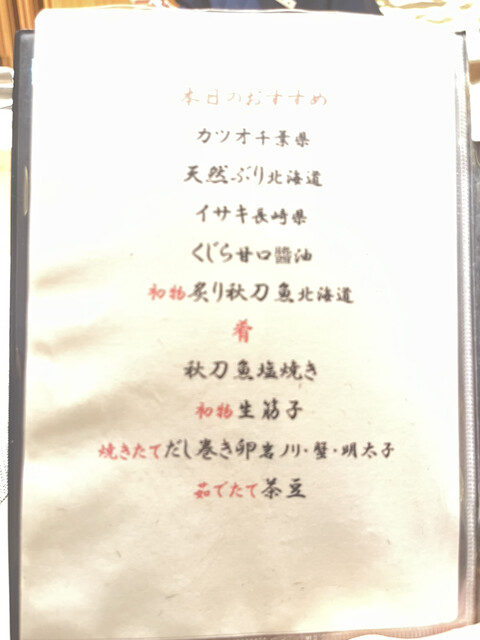 本日のおすすめ
カツオ千葉県
天然ぶり北海道
イサキ長崎県
くじら甘口醬油
初物炙り秋刀魚北海道
肴
秋刀魚塩焼き
初物生筋子
焼きたてだし巻き卵岩ノリ・蟹・明太子
茹でたて茶豆